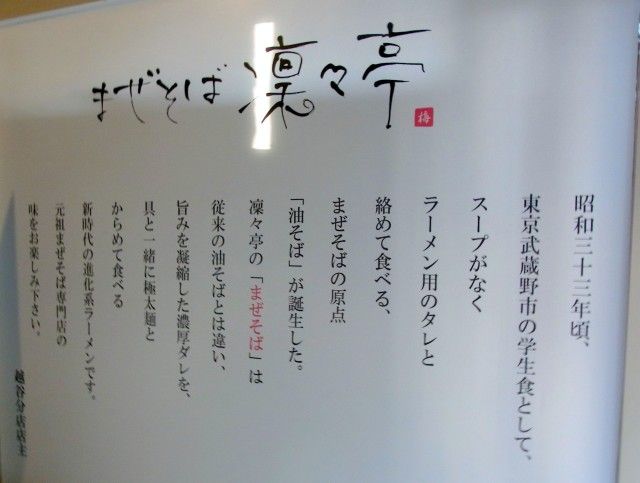 まぜそば 凛々亭
梅
昭和三十三年頃、
東京武蔵野市の学生食として、
スープがなく
ラーメン用のタレと
絡めて食べる、
まぜそばの原点
「油そば」が誕生した。
凜々亭の「まぜそば」は
従来の油そばとは違い、
旨みを凝縮した濃厚ダレを、
具と一緒に極太麺と
からめて食べる
新時代の進化系ラーメンです。
元祖まぜそば専門店の
味をお楽しみ下さい。
越谷分店店主